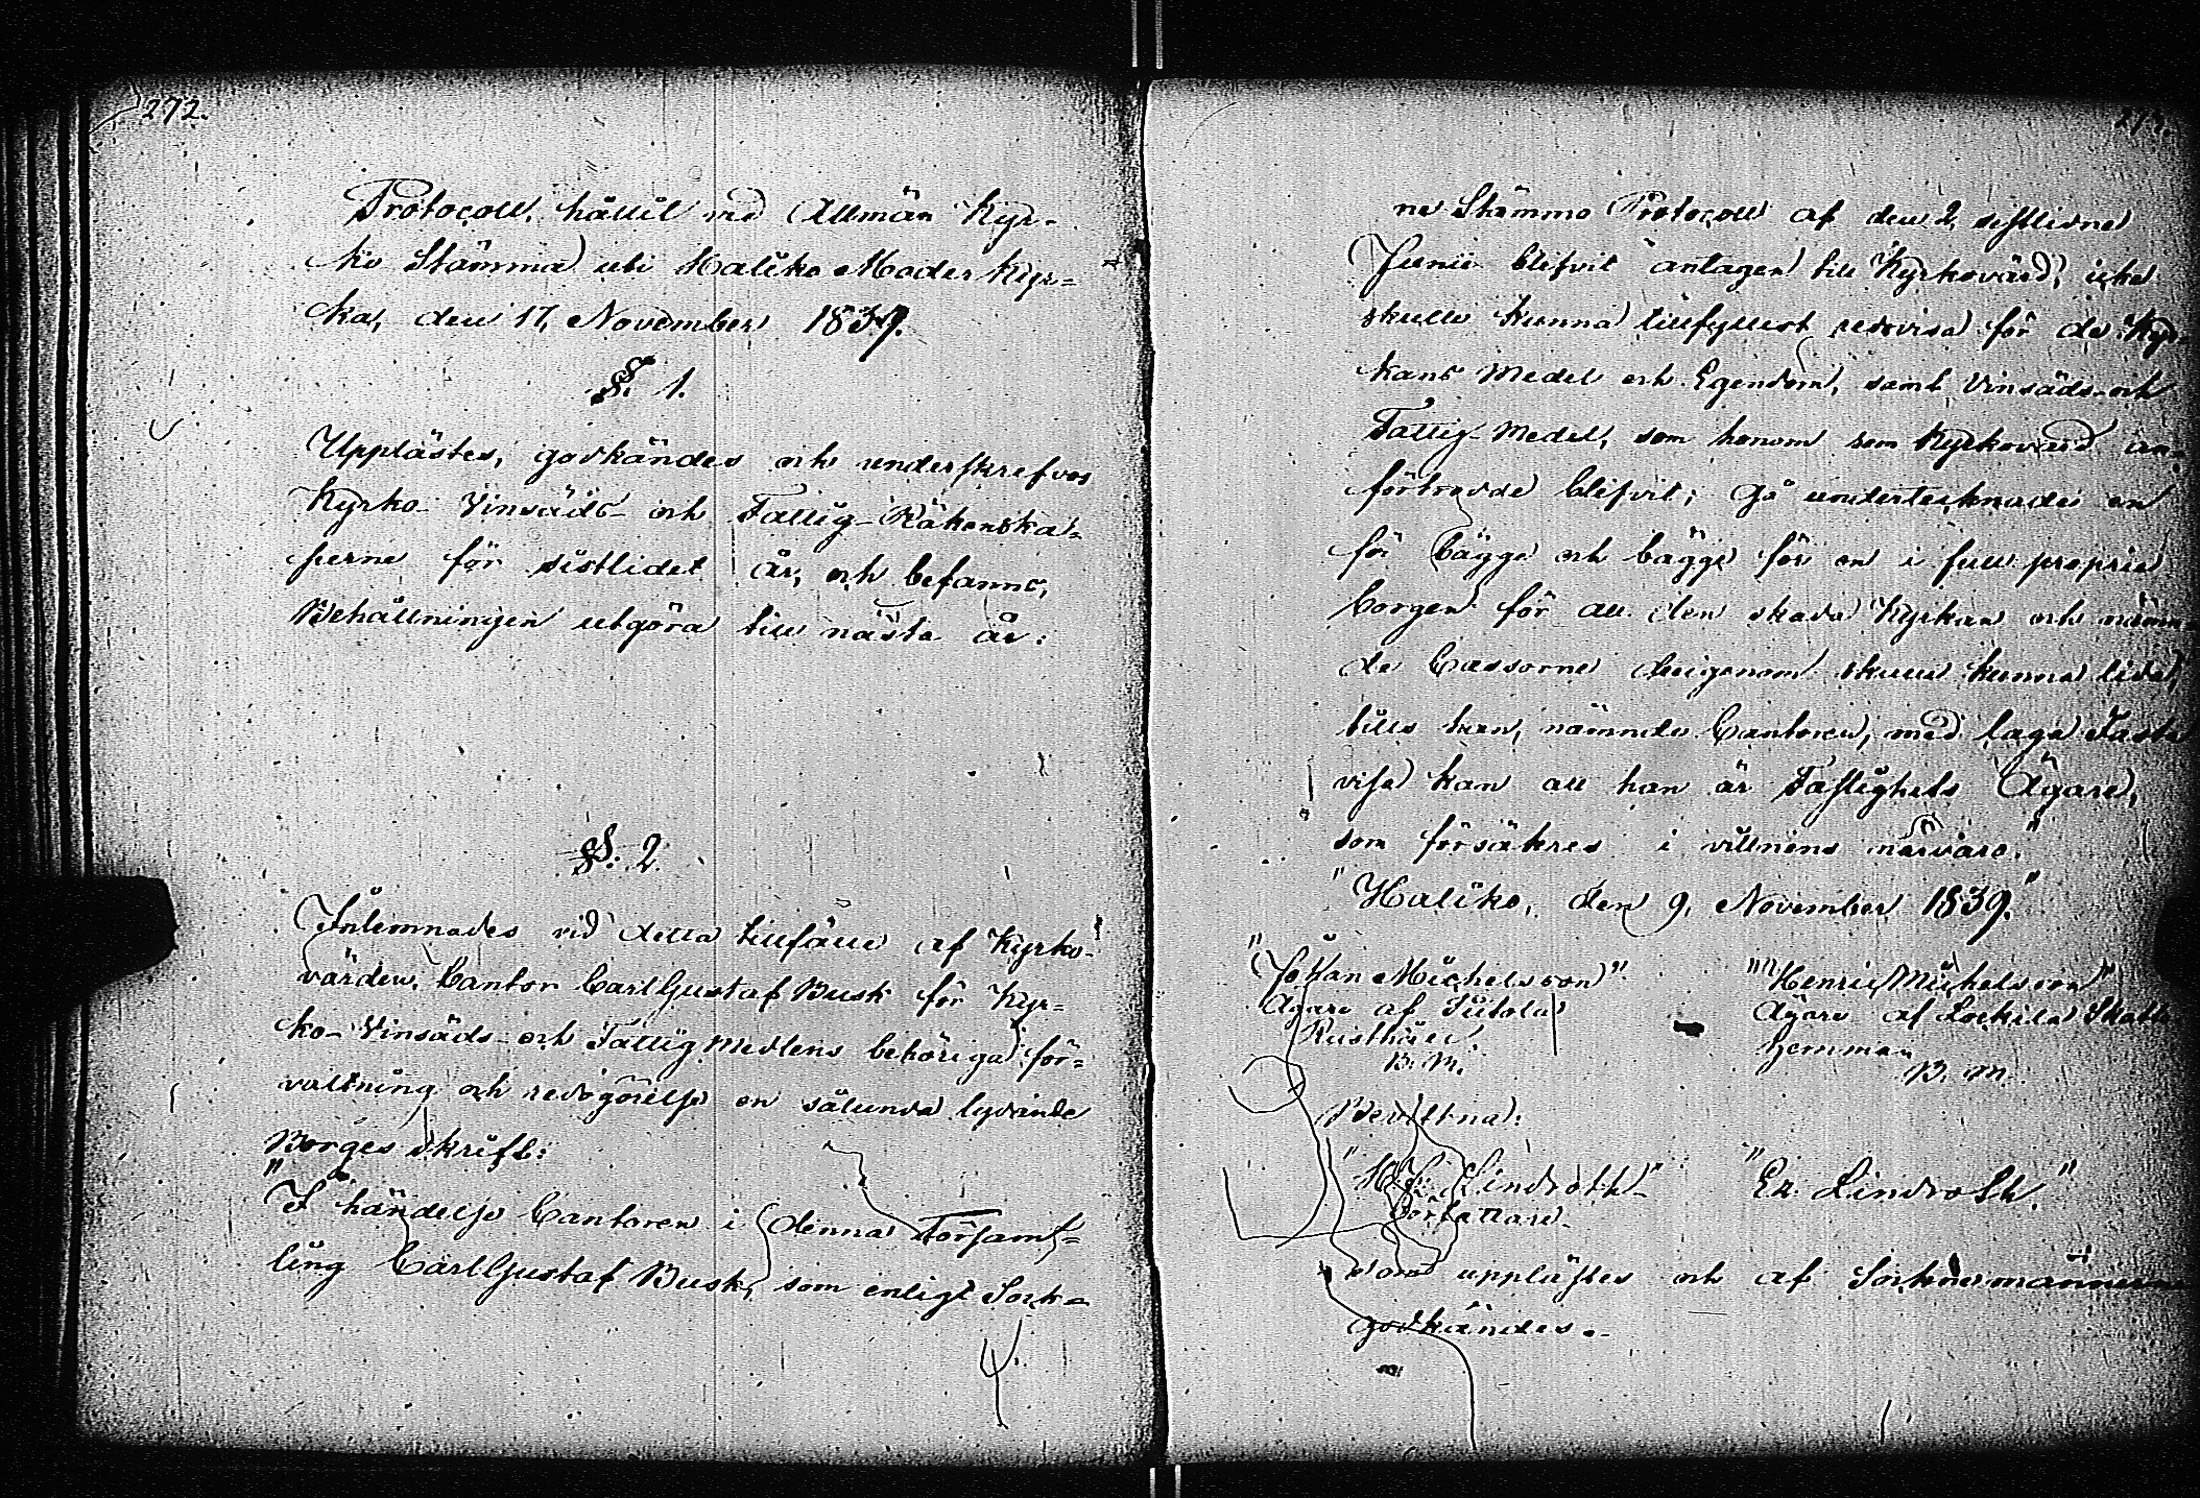 272.
Protocoll, hållit vid Allmän Kyr-
ko Stämma uti Haliko Moder Kyr-
ka, den 17, November 1839.
§. 1.
Upplästes, godkändes och underskrefvos
Kyrko- Vinsäds- och Fattig-Räkenska-
perne för sistlidet år, och befanns,
Behållningen utgöra till nästa år:
§. 2.
Inlemnades vid detta tillfälle af Kyrko-
värden, Cantor Carl Gustaf Busk för Kyr-
ko- Vinsäds- och Fattig Medlens behöriga för-
valtning och redogörelse en sålunda lydande
Borges skrift:
"I händelse Cantoren i denna Försam-
ling Carl Gustaf Busk, som enligt Sock-
ne Stämmo Protocoll af den 2, sistlidne
Junii blifvit antagen till Kyrkovärd, icke
skulle kunna tillfyllest redovisa för de Kyr-
kans Medel och Egendom, samt Vinsäds- och
Fattig-Medel, som honom som Kyrkovärd an-
förtrodde blifvit; gå undertecknade en
för bägge och bägge för en i full proprie
borgen för all den skada Kyrkan och nämn-
de Cassorne derigenom skulle kunna lida,
tills han, nämnde Cantoren, med laga Fasta
visa kan att han är Fastighets Ägare,
som försäkres i vittnens närvaro."
"Haliko, den 9, November 1839."
"Johan Michelsson" "Henric Michelsson"
Ägare af Ägare af Skatte
Rusthåll. hemman
B. M. B. M.
Bevittna:
Lindroth" "Er. Lindroth."
Författare.
som upplästes och af Sockenemännerne
godkändes.-